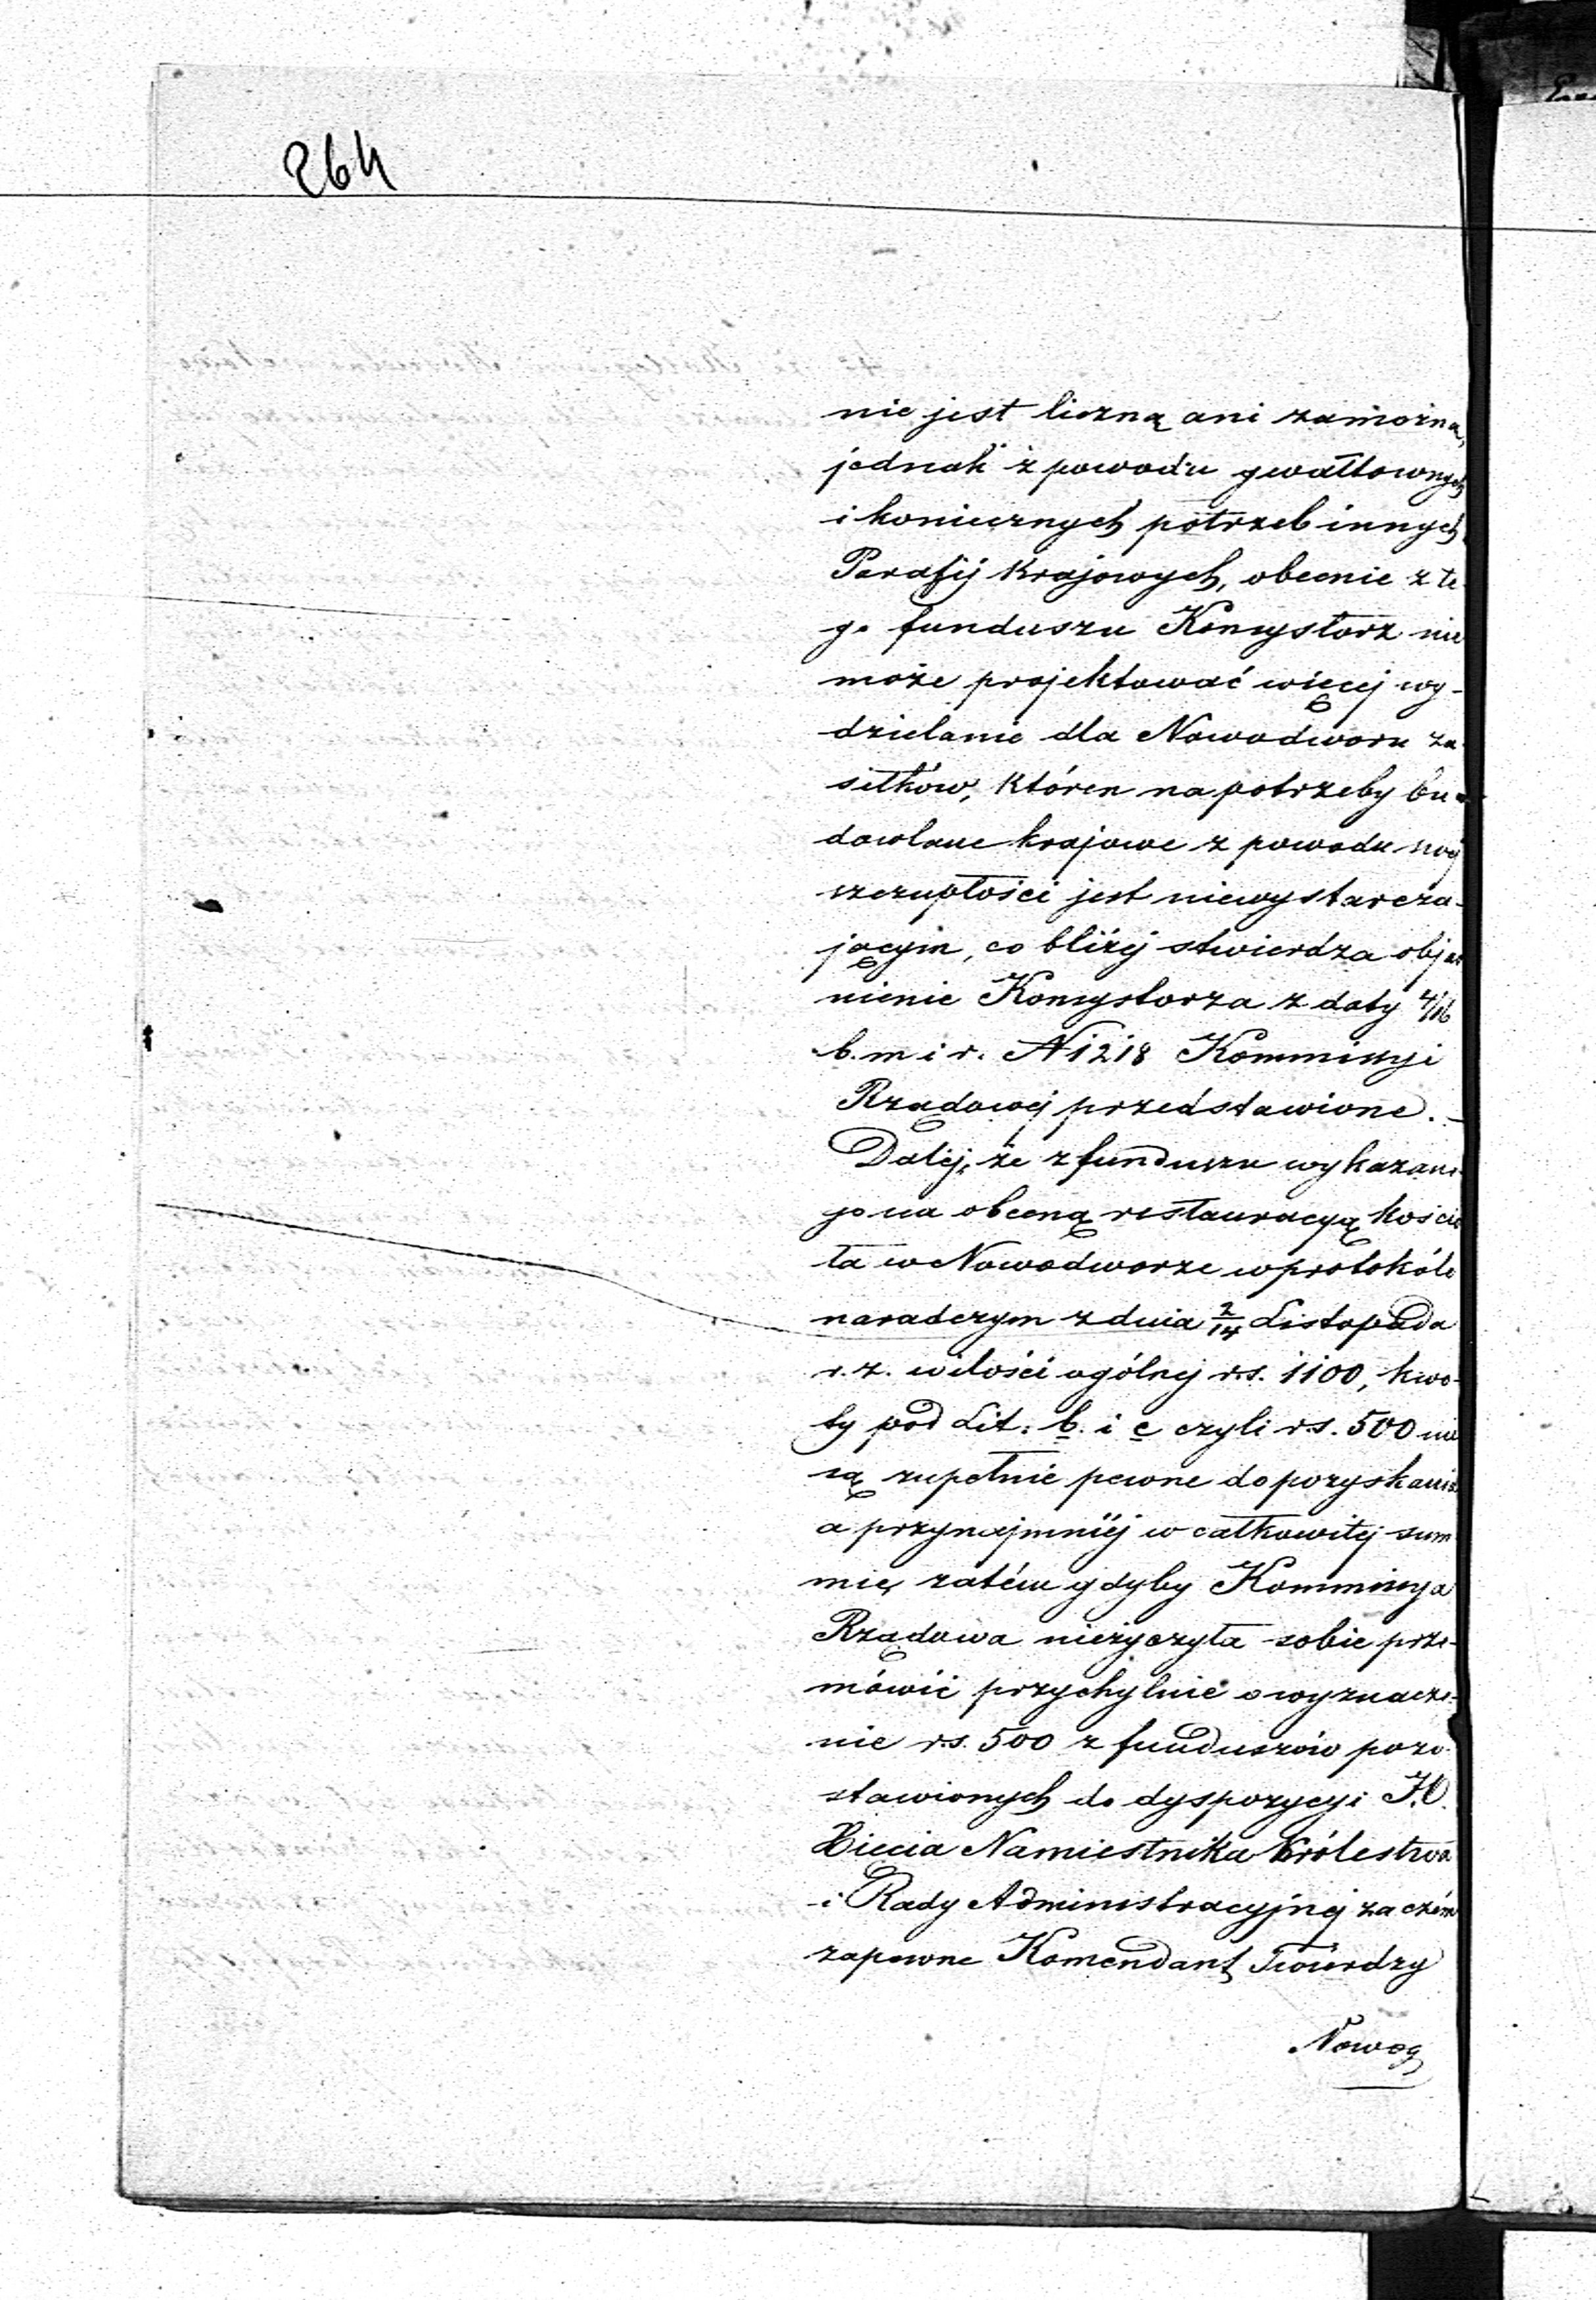 264
nie jest liczną ani zamożną,
jednak z powodu gwałtownych
i koniecznych potrzeb innych
Parafij Krajowych, obecnie z te
go funduszu Konsystorz nie
może projektować więcej wy-
dzielanie dla Nowodworu za
siłków, któren na potrzeby bu-
dowlane krajowe z powodu swej
szczupłości jest niewystarcza-
jącym, co bliżej stwierdza objaś
nienie Konsystorza z daty 4/16
b. m i r. N 1218 Kommissyi
Rządowej przedstawione. –
Dalej, że z funduszu wykazane
go na obecną restauracyą Kościo
ła w Nowodworze w protokóle
naradczym z dnia 2/14 Listopada
r. z. w ilości ogólnej r.s. 1100, kwo-
ty pod Lit: b. i c czyli r.s. 500 nie
są zupełnie pewne do pozyskania
a przynajmniéj w całkowitej sum
mie, zatém gdyby Kommissya
Rządowa nieżyczyła sobie prze-
mówić przychylnie o wyznacze-
nie r.s. 500 z funduszów pozo-
stawionych do dyspozycyi J.O.
Xiecia Namiestnika Królestwa
i Rady Administracyjnej za czém
zapewne Komendant Twierdzy
Nowog